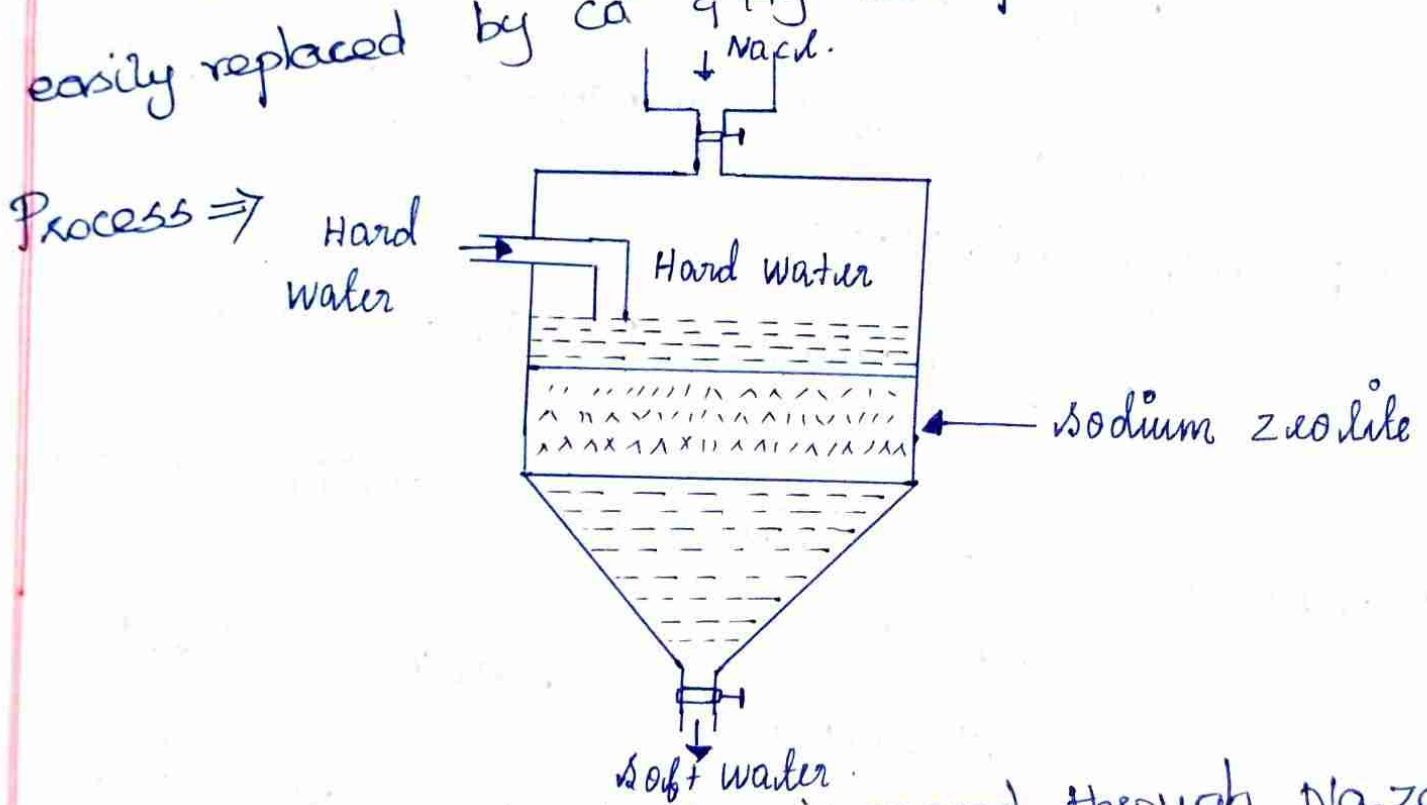 easily replaced by Ca
↓ NaCl.
Process ⇒
Hard
water
Hard water
← sodium zeolite
Soft water.
through Na